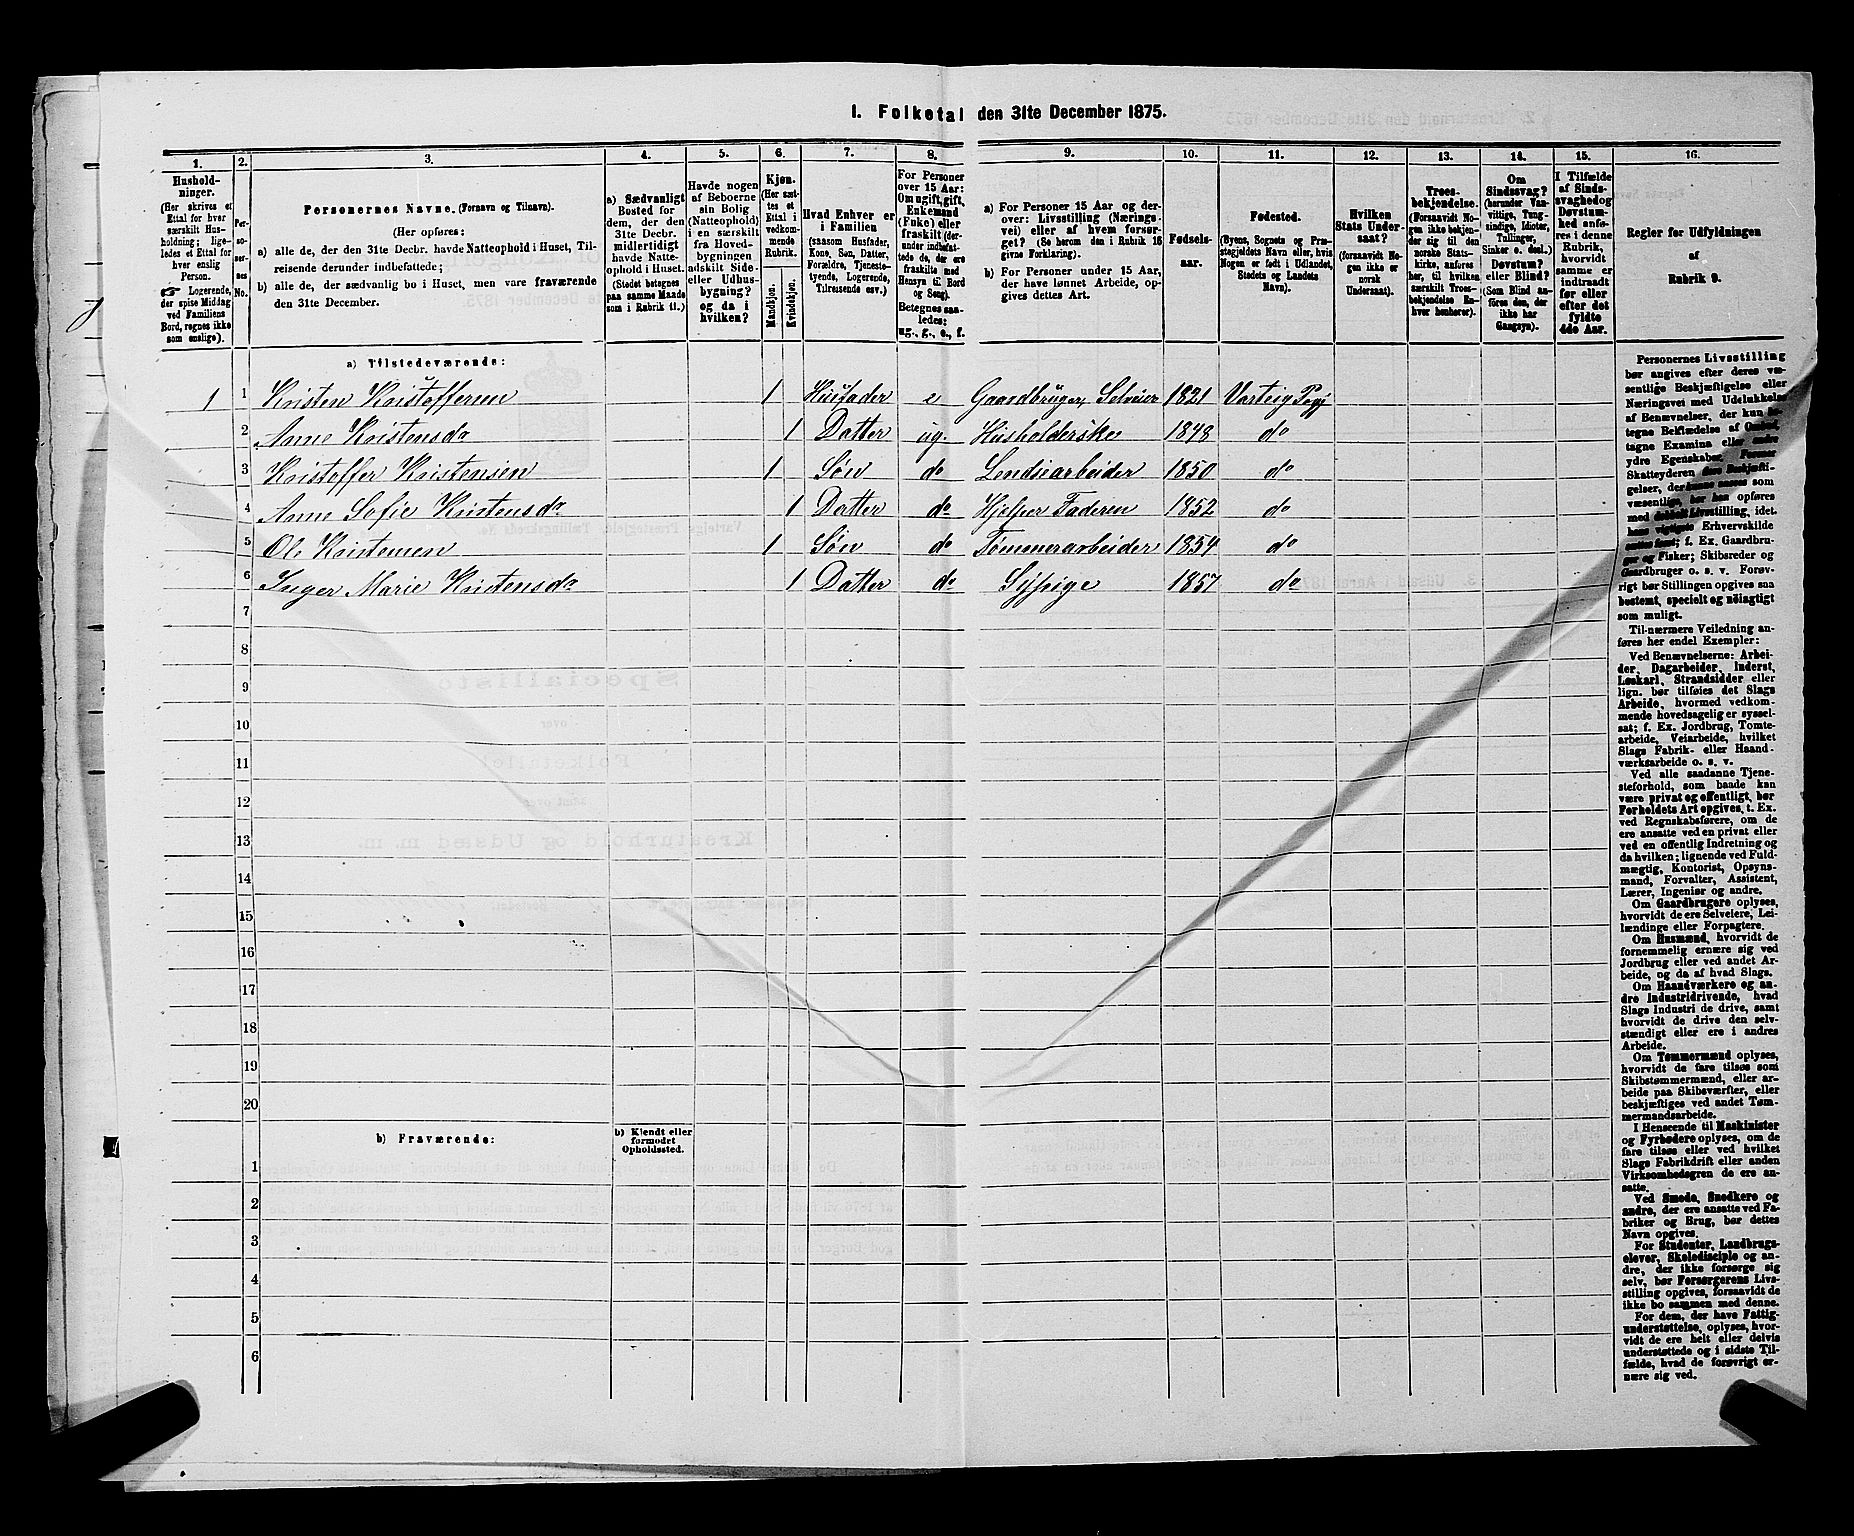 1. Folketal den 31te December 1875.
1. 2. 3. 4. 5. 6. 7. 8. 9. 10. 11. 12. 13. 14. 15. 16.
Hushold-
ninger.
(Her skrives et
Ettal for hver
særskilt Hus-
holdning; lige-
ledes et Ettal for
hver enslig
Person.
☞ Logerende,
der spise Middag
ved Familiens
Bord, regnes ikke
som enslige).
Per-
so-
ner-
nes
No.
Personernes Navne. (Fornavn og Tilnavn).
(Her opføres:
a) alle de, der den 31te Decbr. havde Natteophold i Huset, Til-
reisende derunder indbefattede;
b) alle de, der sædvanlig bo i Huset, men vare fraværende
den 31te December.
a) Sædvanligt
Bosted for
dem, der den
31te Decbr.
midlertidigt
havde Natte-
ophold i Huset.
(Stedet betegnes
paa samme Maade
som i Rubrik 11.)
Havde nogen
af Beboerne
sin Bolig
(Natteophold)
i en særskilt
fra Hoved-
bygningen
adskilt Side-
eller Udhus-
bygning?
og da i
hvilken?
Kjøn.
(Her sæt-
tes et
Ettal i
vedkom-
mende
Rubrik.
Mandkjøn.
Kvindekjøn.
Hvad Enhver er
i Familien
(saasom Husfader,
Kone, Søn, Datter,
Forældre, Tjeneste-
tyende, Logerende,
Tilreisende osv.)
For Personer
over 15 Aar:
Om ugift, gift,
Enkemand
(Enke) eller
fraskilt (der-
under indbefat-
tede de, der ere
fraskilte med
Hensyn til Bord
og Seng).
Betegnes saa-
ledes:
ug., g., e., f.
a) For Personer 15 Aar og der-
over: Livsstilling (Nærings-
vei) eller af hvem forsør-
get? (Se herom den i Rubrik 16
givne Forklaring).
b) For Personer under 15 Aar,
der have lønnet Arbeide, op-
gives dettes Art.
Fødsels-
aar.
Fødested.
(Byens, Sognets og Præ-
stegjeldets Navn eller, hvis
Nogen er født i Udlandet,
Stedets og Landets
Navn).
Hvilken
Stats Under-
saat?
(forsaavidt No-
gen ikke er
norsk
Undersaat).
Troes-
bekjendelse.
(Forsaavidt No-
gen ikke bekjen-
der sig til den
norske Stats-
kirke, anføres
her, til hvilken
særskilt Troes-
bekjendelse En-
hver henhører).
Om
Sindssvag?
(herunder Van-
vittige, Tung-
sindige, Idioter,
Tullinger,
Sinker o. desl.)
Døvstum?
eller Blind?
(Som Blind an-
føres den, der
ikke har
Gangsyn).
I Tilfælde
af Sinds-
svaghed og
Døvstum-
hed anfø-
res i denne
Rubrik,
hvorvidt
samme er
indtraadt
før eller
efter det
fyldte
4de Aar.
Regler for Udfyldningen
af
Rubrik 9.
a) Tilstedeværende:
1 1 Kristen Kristoffersen 1 Husfader e Gaardbruger, Selveier 1821 Varteig Pgj
2 Anne Kristensdr 1 Datter ug. Husholderske 1848 do
3 Kristoffer Kristensen 1 Søn do Lendsearbeider 1850 do
4 Anne Sofie Kristensdr 1 Datter do Hjelper Faderen 1852 do
5 Ole Kristensen 1 Søn do Tømmerarbeider 1854 do
6 Inger Marie Kristensdr 1 Datter do Sypige 1857 do
7
8
9
10
11
12
13
14
15
16
17
18
19
20
b) Fraværende:
b) Kjendt eller
formodet
Opholdssted.
1
2
3
4
5
6
Personernes Livsstilling
bør angives efter deres væ-
sentlige Beskjæftigelse eller
Næringsvei med Udelukkelse
af Benævnelser, der kun be-
tegne Beklædelse af Ombud,
tagne Examina eller andre
ydre Egenskaber. Forener
Skatteyderen flere Beskjæfti-
gelser, der kunne ansees som
væsentlige, bør han opføres
med dobbelt Livsstilling, idet
hans vigtigste Erhvervskilde
sættes først; f. Ex. Gaardbru-
ger og Fisker; Skibsreder og
Gaardbruger o. s. v. Forøv-
rigt bør Stillingen opgives saa
bestemt, specielt og nøiagtigt
som muligt.
Til nærmere Veiledning an-
føres her endel Exempler:
Ved Benævnelserne: Arbei-
der, Dagarbeider, Inderst,
Løskarl, Strandsidder eller
lign. bør tilføies det Slags
Arbeide, hvormed vedkom-
mende hovedsagelig er syssel-
sat; f. Ex. Jordbrug, Tomte-
arbeide, Veiarbeide, hvilket
Slags Fabrik- eller Haand-
værksarbeide o. s. v.
Ved alle saadanne Tjene-
steforhold, som baade kan
være privat og offentligt, bør
Forholdets Art opgives, t. Ex.
ved Regnskabsførere, om de
ere ansatte ved en privat eller
ved en offentlig Indretning og
da hvilken; lignende ved Fuld-
mægtig, Kontorist, Opsyns-
mand, Forvalter, Assistent,
Lærer, Ingeniør og andre.
Om Gaardbrugere oplyses,
hvorvidt de ere Selveiere, Lei-
lændinge eller Forpagtere.
Om Husmænd, hvorvidt de
fornemmelig ernære sig ved
Jordbrug eller ved andet Ar-
beide, og da af hvad Slags.
Om Haandværkere og an-
dre Industridrivende, hvad
Slags Industri de drive, samt
hvorvidt de drive den selv-
stændigt eller ere i andres
Arbeide.
Om Tømmermænd oplyses,
hvorvidt de fare tilsøs som
Skibstømmermænd, eller ar-
beide paa Skibsværfter, eller
beskjæftiges ved andet Tøm-
mermandsarbeide.
I Henseende til Maskinister
og Fyrbødere oplyses, om de
fare tilsøs eller ved hvilket
Slags Fabrikdrift eller anden
Virksomhedsgren de ere an-
satte.
Ved Smede, Snedkere og
andre, der ere ansatte ved Fa-
briker og Brug, bør dettes
Navn opgives.
For Studenter, Landbrugs-
elever, Skoledisciple og an-
dre, der ikke forsørge sig
selv, bør Forsørgerens Livs-
stilling opgives, forsaavidt de
ikke bo sammen med denne.
For dem, der have Fattig-
understøttelse, oplyses, hvor-
vidt de ere helt eller delvis
understøttede og i sidste Til-
fælde, hvad de forøvrigt er-
nære sig ved.